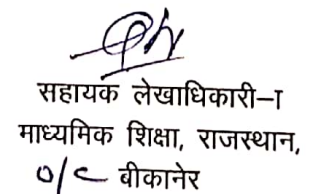 सहायक लेखाधिकारी–I
माध्यमिक शिक्षा, राजस्थान,
o/c बीकानेर